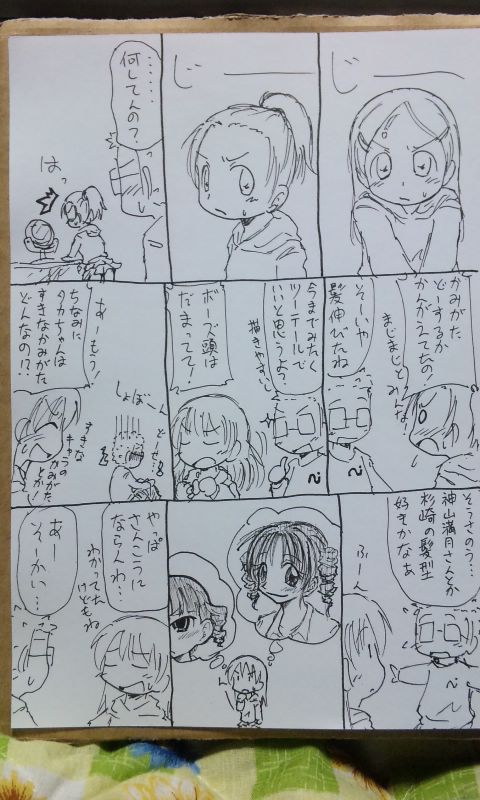 じーーー
じーーー
‥‥‥
何してんの?
はっ
かみがた
どーするか
かんがえてたの!
まじまじとみんな!
そーいや
髪伸びたね
今までみたく
ツーテールで
いいと思うよ?
描きやすいし
ボーズ頭は
だまってて!
どーせ
しょぼーん
あーもう!
ちなみに
タカちゃんは
すきなかみがた
どんなの!?
すきな
キャラの
かみがた
とか!
そうさのう‥
神山満月さんとか
杉崎の髪型
好きかなぁ
ふーん
やっぱ
さんこうに
ならんわ‥
わかってた
けどもね
あー
そーかい‥